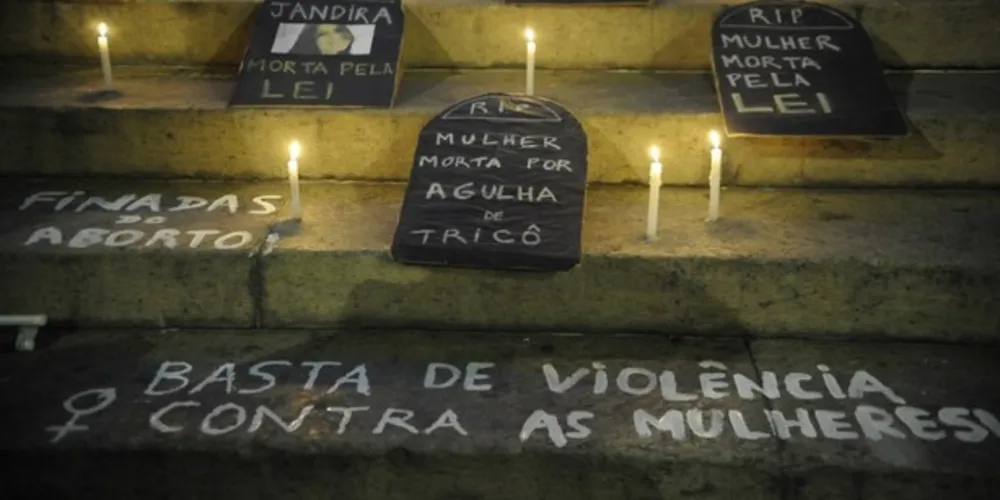 JANDIRA
MORTA PELA
LEI
RIP
MULHER
MORTA
PELA
LEI
RIP
MULHER
MORTA POR
AGULHA
DE
TRICÔ
FINADAS
DO
ABORTO!
BASTA DE VIOLÊNCIA
CONTRA AS MULHERES!